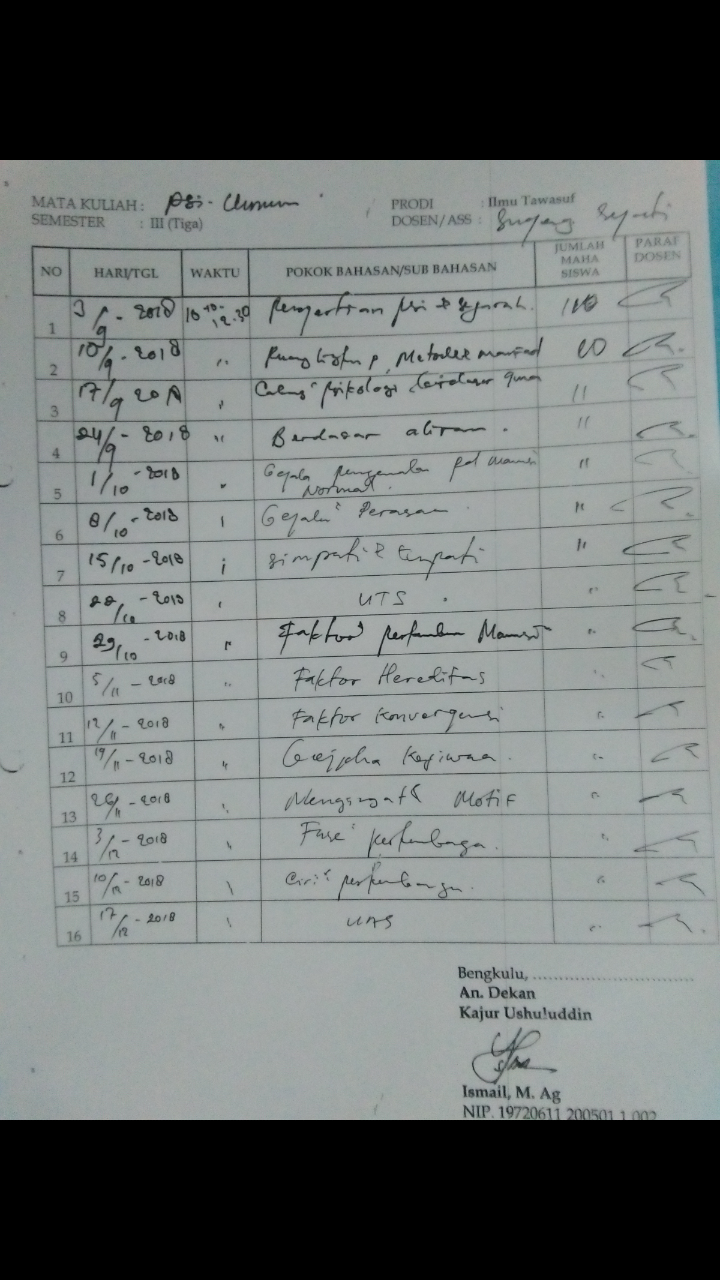 MATA KULIAH : Psi- Umum
PRODI : Ilmu Tawasuf
SEMESTER : III (Tiga)
DOSEN/ ASS : Sugeng Sejati
NO HARI/TGL WAKTU POKOK BAHASAN/SUB BAHASAN JUMLAH MAHA SISWA PARAF DOSEN
1 3/9 - 2018 12.30 Pengertian psi & sejarah.
2 10/9 - 2018 " Ruang p, Metode &
3 17/9 psikologi "
4 24/9 - 2018 " Berdasar aliran . "
5 1/10 - 2018 " Gejala pengenalan pd "
Normal.
6 8/10 - 2018 Gejala² Perasaan "
7 15/10 - 2018 simpati & empati "
8 22/10 - 2018 UTS . "
9 29/10 - 2018 " Faktor² "
10 5/11 - 2018 " Faktor Hereditas "
11 12/11 - 2018 " Faktor Konvergensi "
12 19/11 - 2018 " Kejiwaan . "
13 26/11 - 2018 " Motif "
14 3/12 - 2018 Fase² "
15 10/12 - 2018 Ciri² "
16 17/12 - 2018 UAS "
Bengkulu, ..............................
An. Dekan
Kajur Ushuluddin
Ismail, M. Ag
NIP. 19720611 200501 1 002